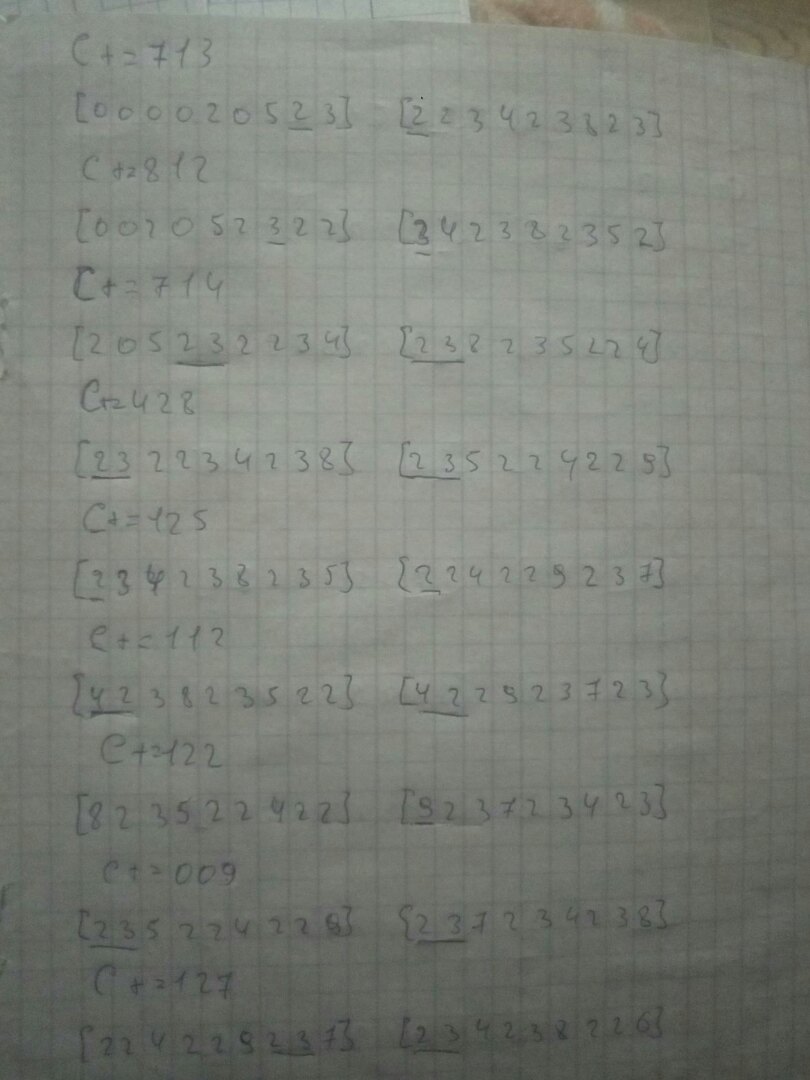 C+=713
[000020523] [223423823]
C+=812
[002052322] [342382352]
C+=714
[205232234] [238235224]
C+=428
[232234238] [235224229]
C+=125
[234238235] [224229237]
C+=112
[423823522] [422923723]
C+=122
[823522422] [923723423]
C+=009
[235224229] [237234238]
C+=127
[224229237] [234238226]